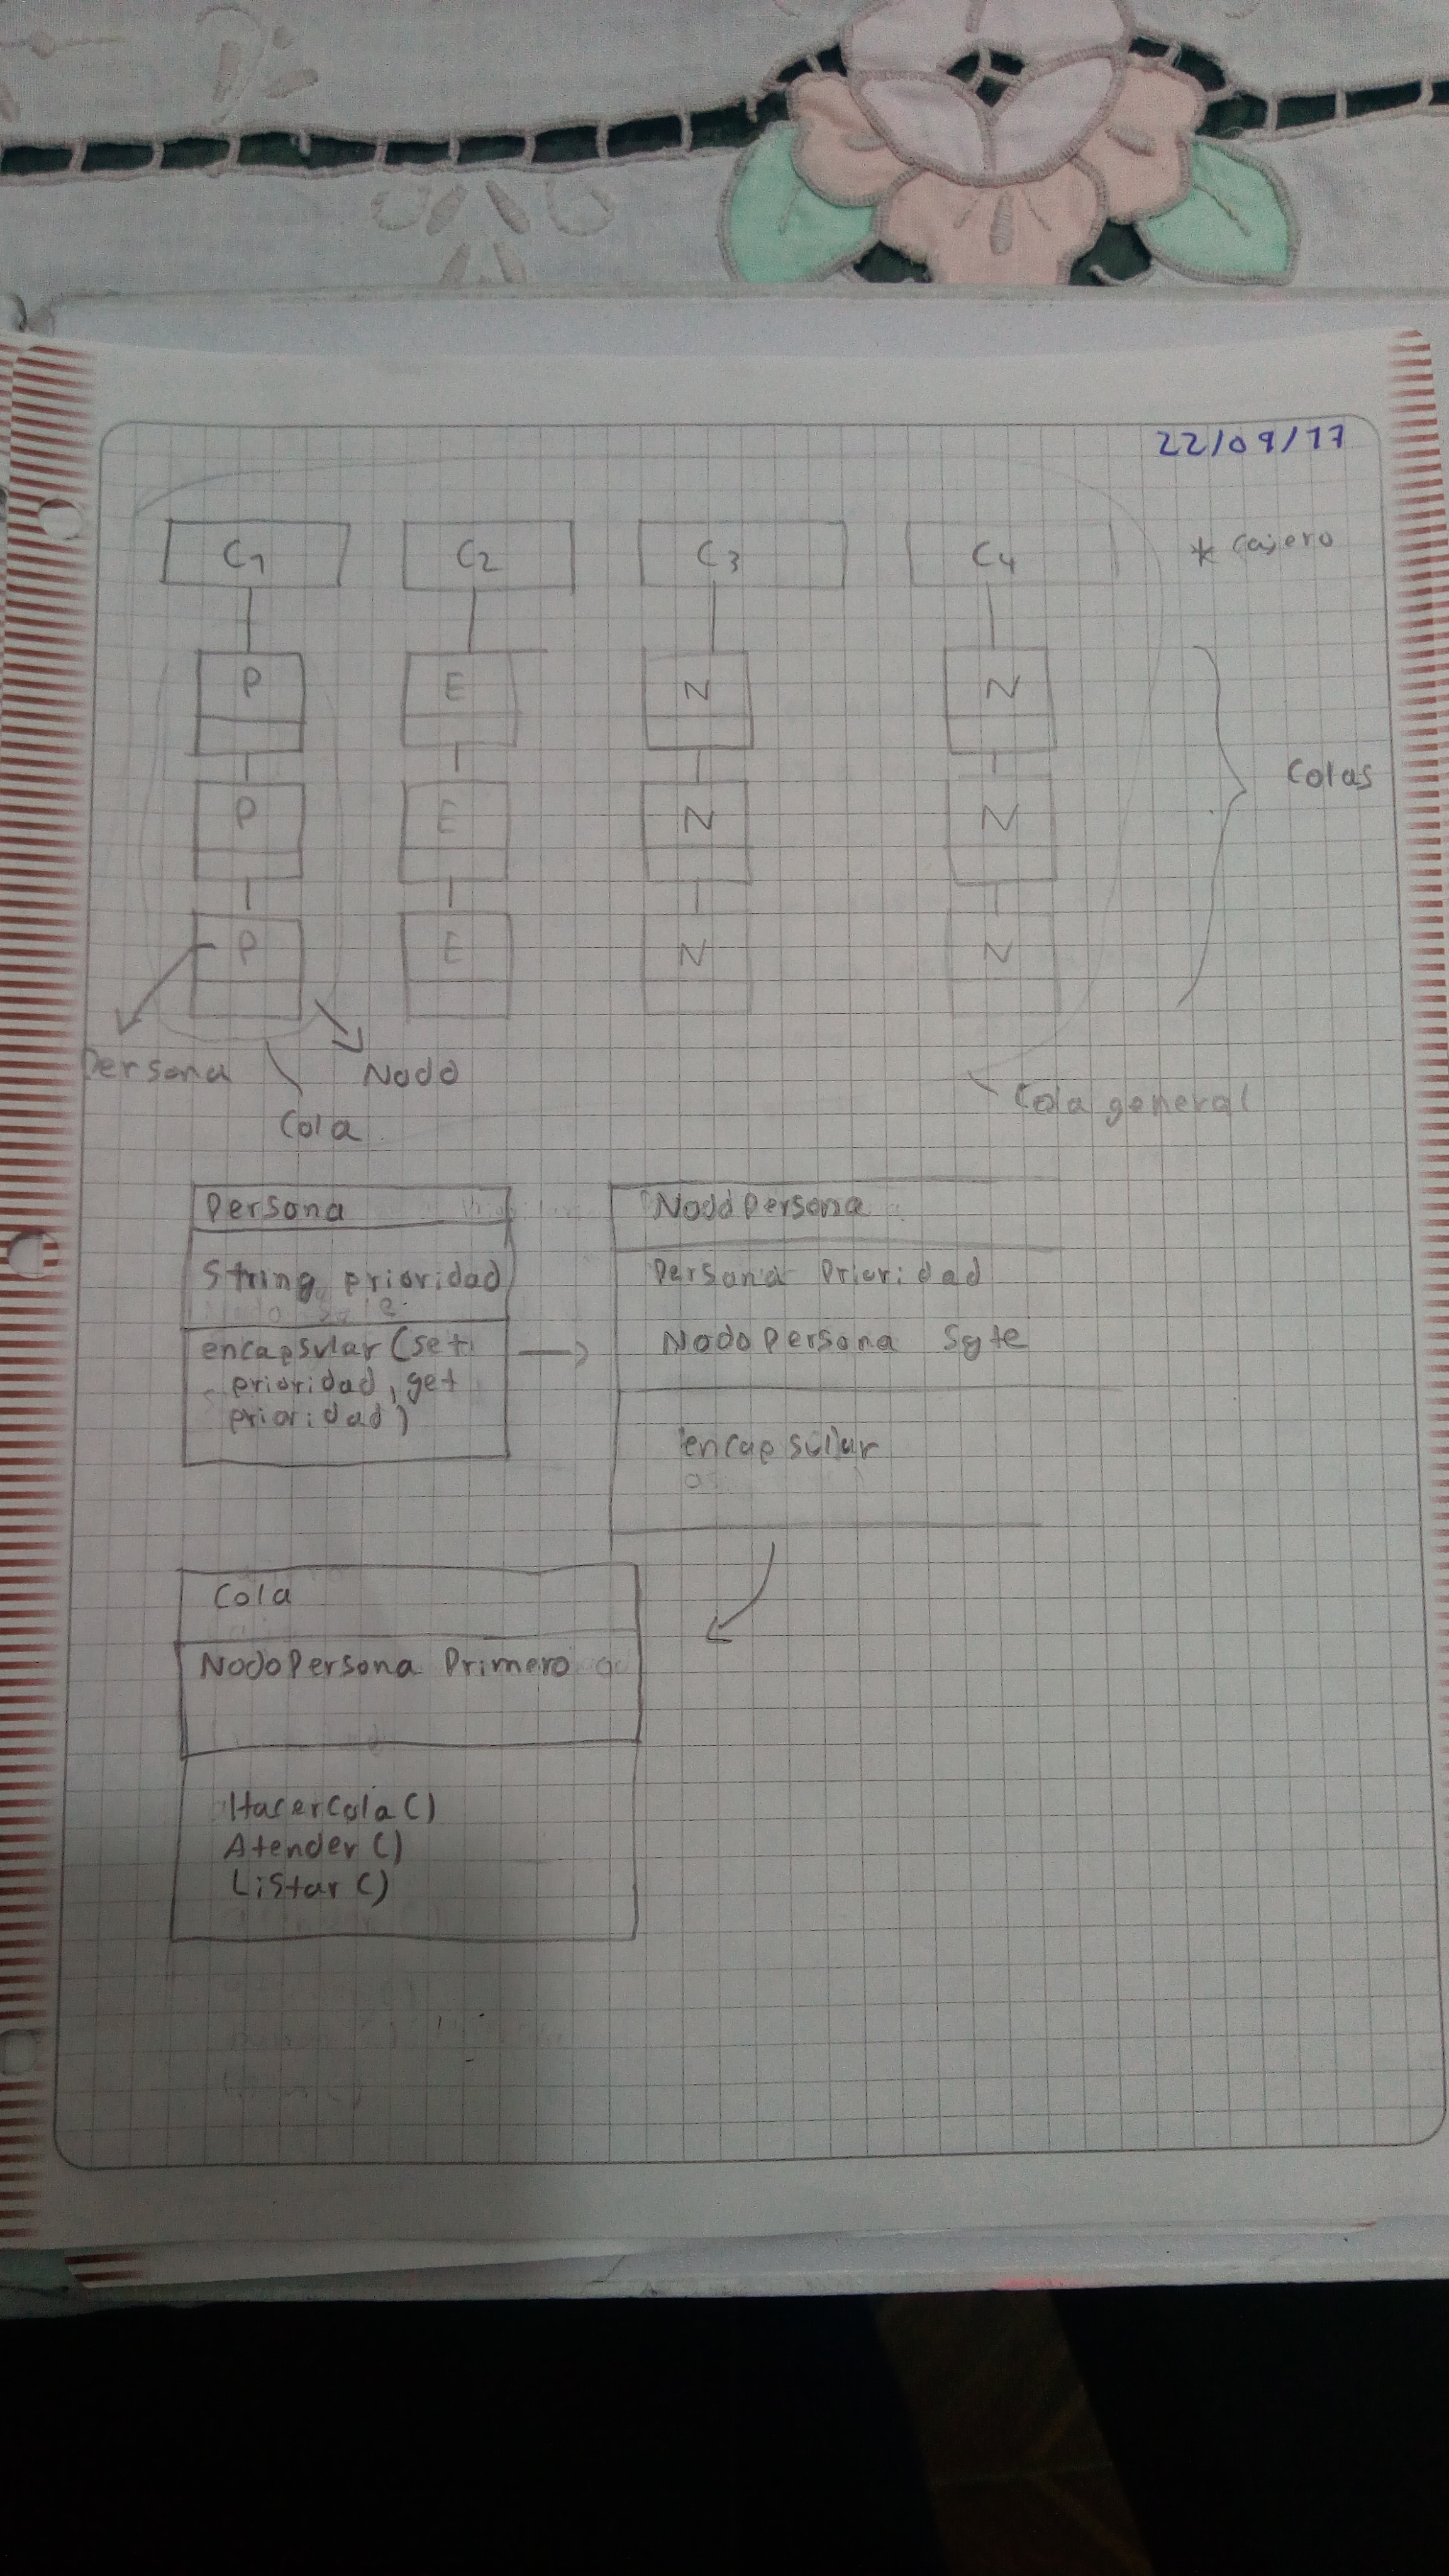 22/09/17
C1 C2 C3 C4 * Cajero
P E N N
Colas
P E N N
P E N N
Persona Nodo
Cola
Cola general
Persona
String prioridad
encapsular (set
prioridad, get
prioridad)
NodoPersona
Persona Prioridad
NodoPersona Sgte
encapsular
Cola
NodoPersona Primero
HacerCola()
Atender()
Listar()